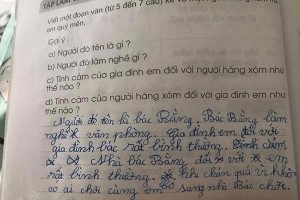 TẬP LÀM
Viết một đoạn văn (từ 5 đến 7 câu) kể về
em quý mến.
Gợi ý :
a) Người đó tên là gì ?
b) Người đó làm nghề gì ?
c) Tình cảm của gia đình em đối với người hàng xóm như
thế nào ?
d) Tình cảm của người hàng xóm đối với gia đình em như
thế nào ?
Người đó tên là bác Bằng. Bác Bằng làm
nghề văn phòng. Gia đình em đối với
gia đình bác rất bình thường. Tình cảm
Nhà bác Bằng đối với em
rất bình thường. khi chán quá vì khô
có ai chơi cùng em sang nhà Bác chơi.